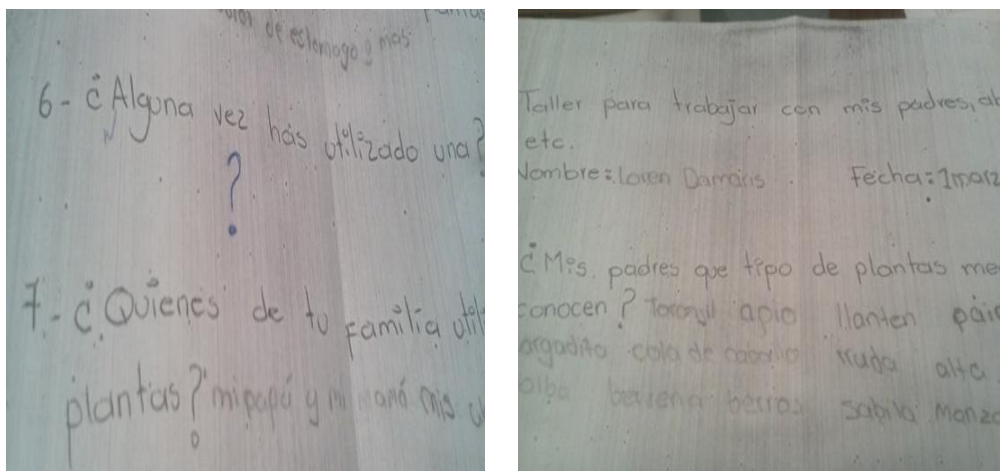 de estomago y mas
6- ¿Alguna vez has utilizado una?
?
7- ¿Quienes de tu familia
plantas? mi papá y mi mamá mis
Taller para trabajar con mis padres,
etc.
Nombre: Loren Damaris Fecha: 1
¿Mis padres que tipo de plantas
conocen? Toronjil apio llanten
cola de caballo rruda alta
alba berbena berros sabila